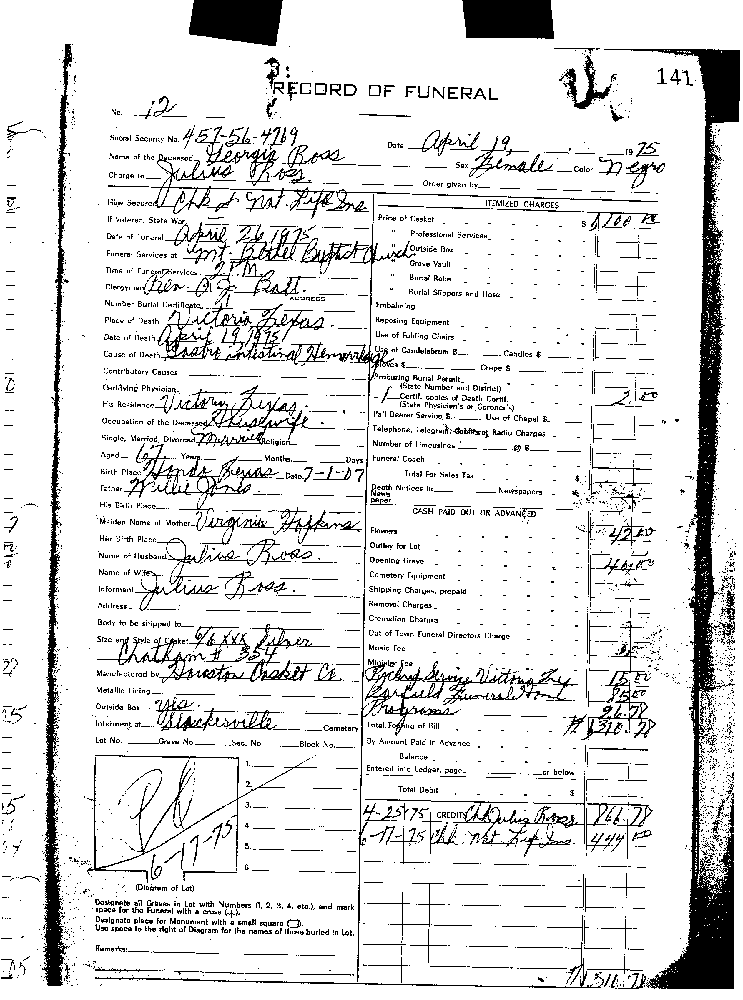 141
RECORD OF FUNERAL
No. 12
Social Security No. 457-56-4769
Date April 19, 1975
Name of the Deceased Georgia Ross
Sex Female Color Negro
Charge to Julius Ross
Order given by
How Secured Chk & Nat. Life Ins
If Veteran, State War
Date of Funeral April 26 1975
Funeral Services at Mt. Bethel Baptist Church
Time of Funeral Services 2 P.M.
Clergyman Rev. Pratt.
ADDRESS
Number Burial Certificate
Place of Death Victoria Texas.
Date of Death April 19, 1975
Cause of Death Gastro intestinal Hemorrhage
Contributory Causes
Certifying Physician
His Residence Victory Texas.
Occupation of the Deceased Housewife.
Single, Married, Divorced Married Religion
Aged 67 Years Months Days
Birth Place Hondo Texas Date 7-1-07
Father Willie Jones
His Birth Place
Maiden Name of Mother Virginia Hopkins
Her Birth Place
Name of Husband Julius Ross.
Name of Wife
Informant Julius Ross.
Address
Body to be shipped to
Size and Style of Casket 6/6 XXX Silver
Chatham # 354
Manufactured by Houston Casket Co
Metallic Lining
Outside Box yes.
Interment at Slockesville Cemetery
Lot No. Grave No. Sec. No. Block No.
1.
2.
3.
4.
5.
6.
Pd
6-17-75
(Diagram of Lot)
Designate all Graves in Lot with Numbers (1, 2, 3, 4, etc.), and mark
space for the Funeral with a cross (+).
Designate place for Monument with a small square (□).
Use space to the right of Diagram for the names of those buried in Lot.
Remarks:
ITEMIZED CHARGES
Price of Casket $ 1,100 00
" Professional Services
" Outside Box
" Grave Vault
" Burial Robe
" Burial Slippers and Hose
Embalming
Reposing Equipment
Use of Folding Chairs
Use of Candelabrum $ Candles $
Gloves $ Crepe $
Procuring Burial Permit
(State Number and District)
1 Certif. copies of Death Certif. 2 00
(State Physician's or Coroner's)
Pall Bearer Service $ Use of Chapel $
Telephone, Telegram, Cable or Radio Charges
Number of Limousines @ $
Funeral Coach
Total For Sales Tax
Death Notices in Newspapers
News
paper
CASH PAID OUT OR ADVANCED
Flowers 42 00
Outlay for Lot
Opening Grave 40 00
Cemetery Equipment
Shipping Charges, prepaid
Removal Charges
Cremation Charges
Out of Town Funeral Directors Charge
Music Fee
Minister Fee
Service Victoria 15 00
Garfield Funeral Home 85 00
Programs 26.78
Total Footing of Bill
By Amount Paid in Advance
Balance
Entered into Ledger, page or below
Total Debit $
4-25-75 CREDIT Chk Julius Ross 866.78
6-17-75 Chk Nat Life Ins. 444 00